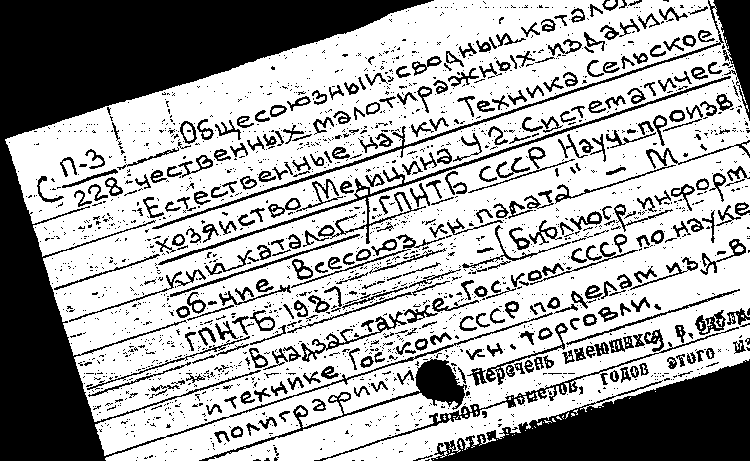 Общесоюзный сводный катало
С П-3
228
чественных малотиражных издании.
Естественные науки. Техника. Сельское
хозяйство. Медицина. Ч 2. Систематичес-
кий каталог / ГПНТБ СССР Науч.-произв
об-ние „Всесоюз. кн. палата". - М.:
ГПНТБ, 1987- . - (Библиогр информ
В надзаг. также: Гос. ком. СССР по науке
и технике, Гос. ком. СССР по делам изд-в
полиграфии и кн. торговли.
Перечень имеющихся в библи
томов, номеров, годов этого из
смотри в